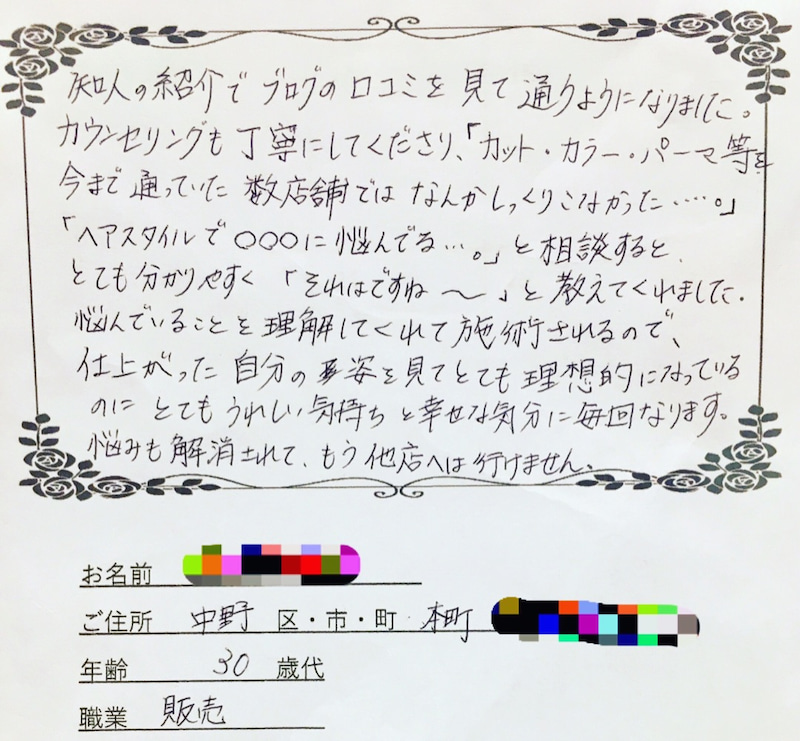 知人の紹介でブログの口コミを見て通りようになりました。
カウンセリングも丁寧にしてくださり、「カット・カラー・パーマ等を
今まで通っていた数店舗ではなんかしっくりこなかった……。」
「ヘアスタイルで○○○に悩んでる…。」と相談すると、
とても分かりやすく「それはですね〜」と教えてくれました。
悩んでいることを理解してくれて施術されるので、
仕上がった自分の姿を見てとても理想的になっている
のにとてもうれしい気持ちと幸せな気分に毎回なります。
悩みも解消されて、もう他店へは行けません。
お名前
ご住所 中野 区・市・町 本町
年齢 30 歳代
職業 販売